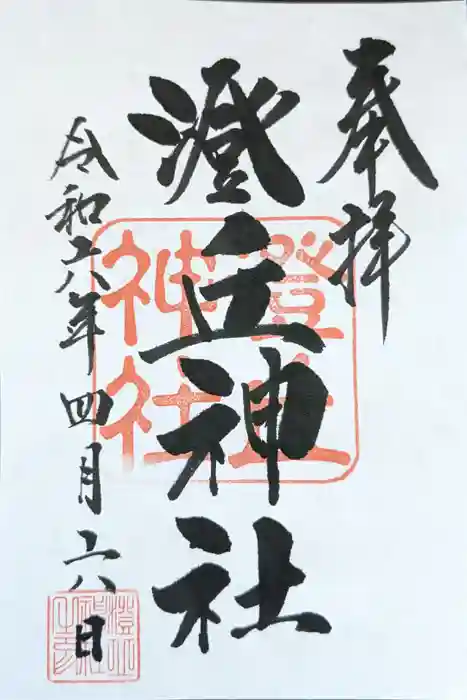 奉拝
澄丘神社
澄丘
神社
令和六年四月六日